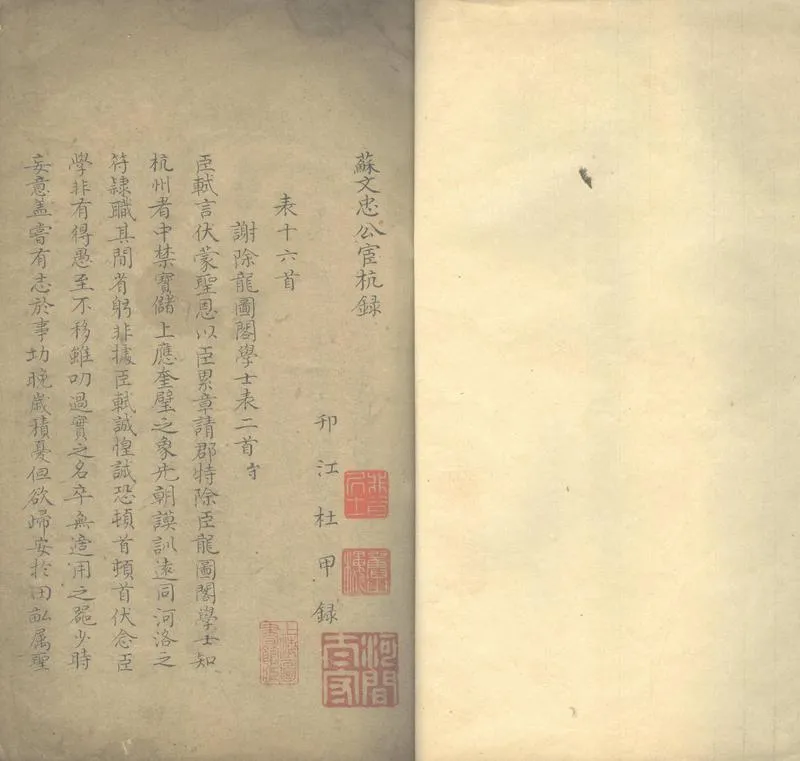 蘇文忠公宦杭録
邗江杜甲録
表十六首
謝除龍圖閣學士表二首
臣軾言伏蒙聖恩以臣累章請郡特除臣龍圖閣學士知
杭州者中禁寶儲上應奎璧之象先朝謨訓遠同河洛之
符隷職其間省躬非據臣軾誠惶誠恐頓首頓首伏念臣
學非有得愚至不移雖叨過實之名卒無適用之噐少時
妄意盖嘗有志於事功晚歲積憂但欲歸安於田畝属聖
上海圖書館藏
河間